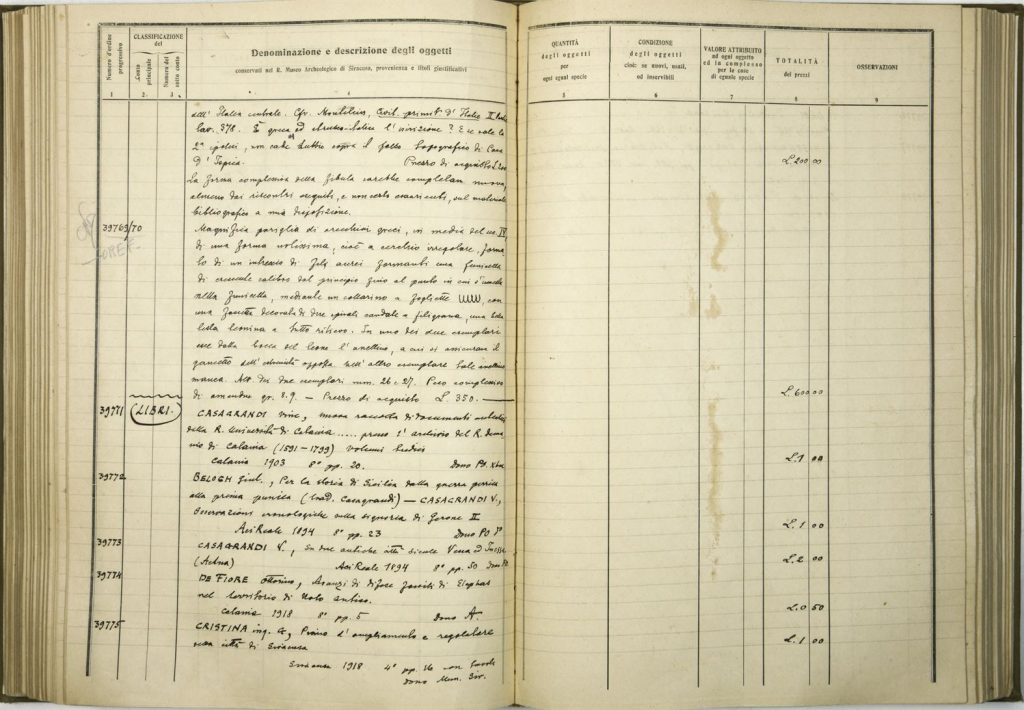 Numero d'ordine progressivo
CLASSIFICAZIONE del
Conto principale
Numero del sotto conto
Denominazione e descrizione degli oggetti
conservati nel R. Museo Archeologico di Siracusa, provenienza e titoli giustificativi
1 2. 3. 4
dell' Italia centrale. Cfr. Montelius, Civil. primit. d' Italie II
tav. 378. È greca ed etrusco-italica l' incisione? E se vale la
2ª ipotesi, un caso
D' Tapia. Prezzo di acquisto L. 200
La forma complessiva della fibula sarebbe nuova,
almeno dai riscontri eseguiti, e non certo esaurienti, sul materiale
bibliografico a mia disposizione.
39769/70
Magnifica pariglia di orecchini greci, in media del sec. IV,
di una forma notissima, cioè a cerchio irregolare, forma
to di un intreccio di fili aurei formanti una funicella
di crescente calibro dal principio fino al punto in cui è
nella funicella, mediante un collarino a fogliette, con
una decorata di due spirali a filigrana, una bella
testa leonina a tutto rilievo. In uno dei due esemplari
esce dalla bocca del leone l' anellino, a cui si assicurava il
gancetto dell' estremità opposta. Nell' altro esemplare tale anellino
manca. Alt. dei due esemplari mm. 26 e 27. Peso complessivo
di amendue gr. 8.9. — Prezzo di acquisto L. 350. —
39771
LIBRI.
CASAGRANDI Vinc., nuova raccolta di documenti
della R. Università di Catania ..... presso l' archivio del R. dema
nio di Catania (1591 – 1799) volumi tredici
Catania 1903 8° pp. 20. Dono
39772
BELOGH Giul., Per la storia di Sicilia dalla guerra
alla prima punica (trad. Casagrandi) — CASAGRANDI V.,
Osservazioni cronologiche sulla signoria di Gerone II
Aci Reale 1894 8° pp. 23 Dono
39773
CASAGRANDI V., Su due antiche città sicule Vessa ed Inessa
(Aetna) Aci Reale 1894 8° pp. 50
39774
DE FIORE Ottorino, Avanzi di difese fossili di Elephas
nel territorio di Noto antico.
Catania 1918 8° pp. 5 Dono A.
39775
CRISTINA ing. G., Piano d' ampliamento e regolatore
città di Siracusa
Siracusa 1918 4° pp. 16 con tavole
Dono Mun. Sir.
QUANTITÀ degli oggetti per ogni egual specie
CONDIZIONE degli oggetti cioè: se nuovi, usati, ed inservibili
VALORE ATTRIBUITO ad ogni oggetto ed in complesso per le cose di eguale specie
TOTALITÀ dei prezzi
OSSERVAZIONI
5 6 7 8 9
L. 200 00
L. 600 00
L. 1 00
L. 1 00
L. 2 00
L. 0 50
L. 1 00